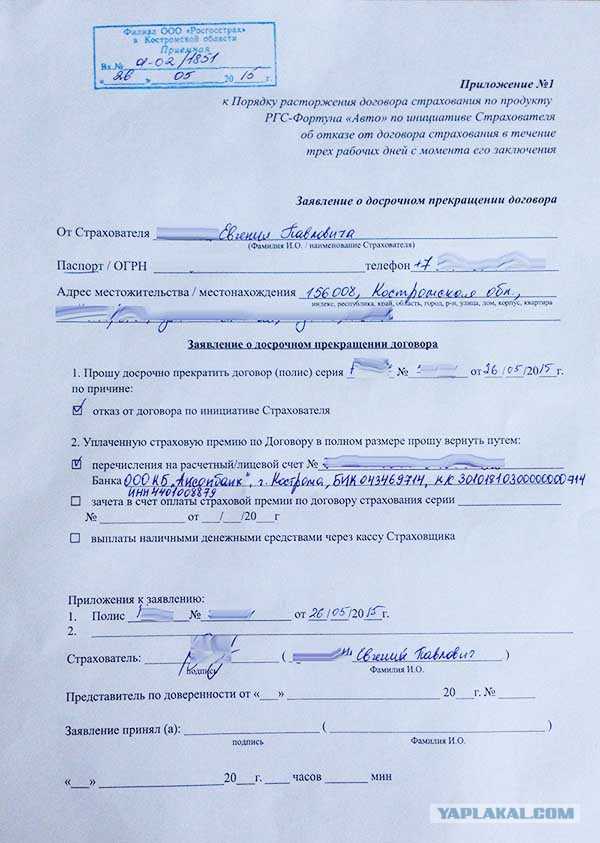 Филиал ООО «Росгосстрах»
в Костромской области
Приемная
Вх.№ 01-02/1851
« 26 » 05 2015 г.
Приложение №1
к Порядку расторжения договора страхования по продукту
РГС-Фортуна «Авто» по инициативе Страхователя
об отказе от договора страхования в течение
трех рабочих дней с момента его заключения
Заявление о досрочном прекращении договора
От Страхователя Евгения Павловича
(Фамилия И.О. / наименование Страхователя)
Паспорт / ОГРН телефон +7
Адрес местожительства / местонахождения 156008, Костромская обл.,
индекс, республика, край, область, город, р-н, улица, дом, корпус, квартира
Заявление о досрочном прекращении договора
1. Прошу досрочно прекратить договор (полис) серия № от 26/05/2015г.
по причине:
отказ от договора по инициативе Страхователя
2. Уплаченную страховую премию по Договору в полном размере прошу вернуть путем:
перечисления на расчетный/лицевой счет №
Банка ООО КБ "Аксонбанк", г. Кострома, БИК 043469714, к/с 30101810300000000714
ИНН 4401008879
зачета в счет оплаты страховой премии по договору страхования серии
№ от __/__/20__г
выплаты наличными денежными средствами через кассу Страховщика
Приложения к заявлению:
1. Полис № от 26/05/2015г.
2.
Страхователь: ( Евгений Павлович )
подпись Фамилия И.О.
Представитель по доверенности от «__» 20__г. №
Заявление принял (а): ( )
подпись Фамилия И.О.
«__» 20__г. ____ часов ____ мин
YAPLAKAL.COM